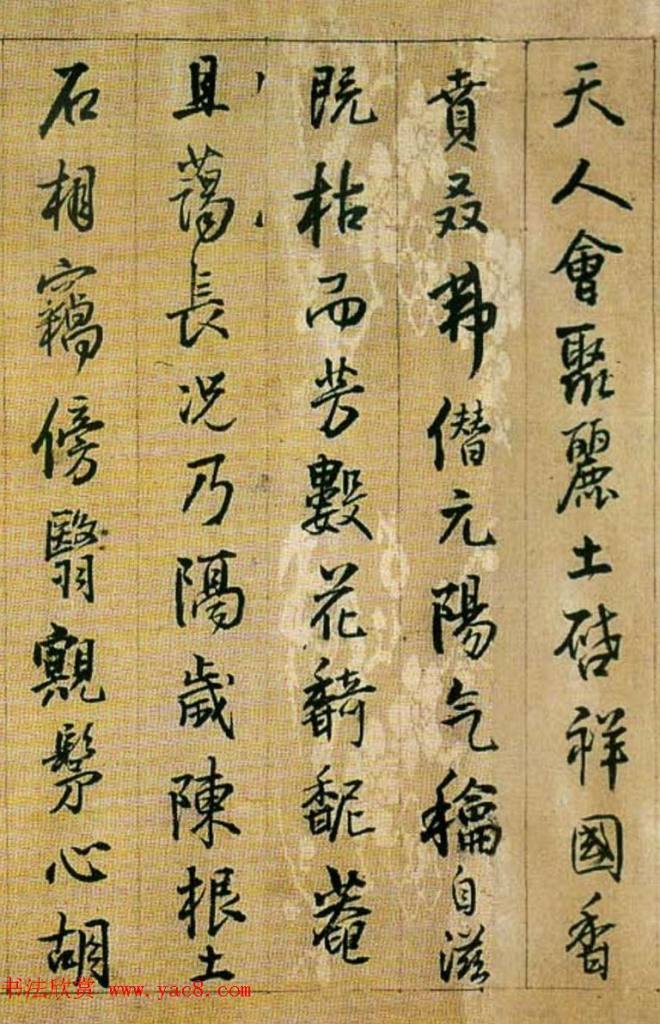 天人會聚麗土啓祥國香
賁叒茀僭元陽气龢自滋
既枯而芳數花馜菴
且藹長况乃隔歲陳根土
石相竊傍翳心胡
书法欣赏 www.yac8.com